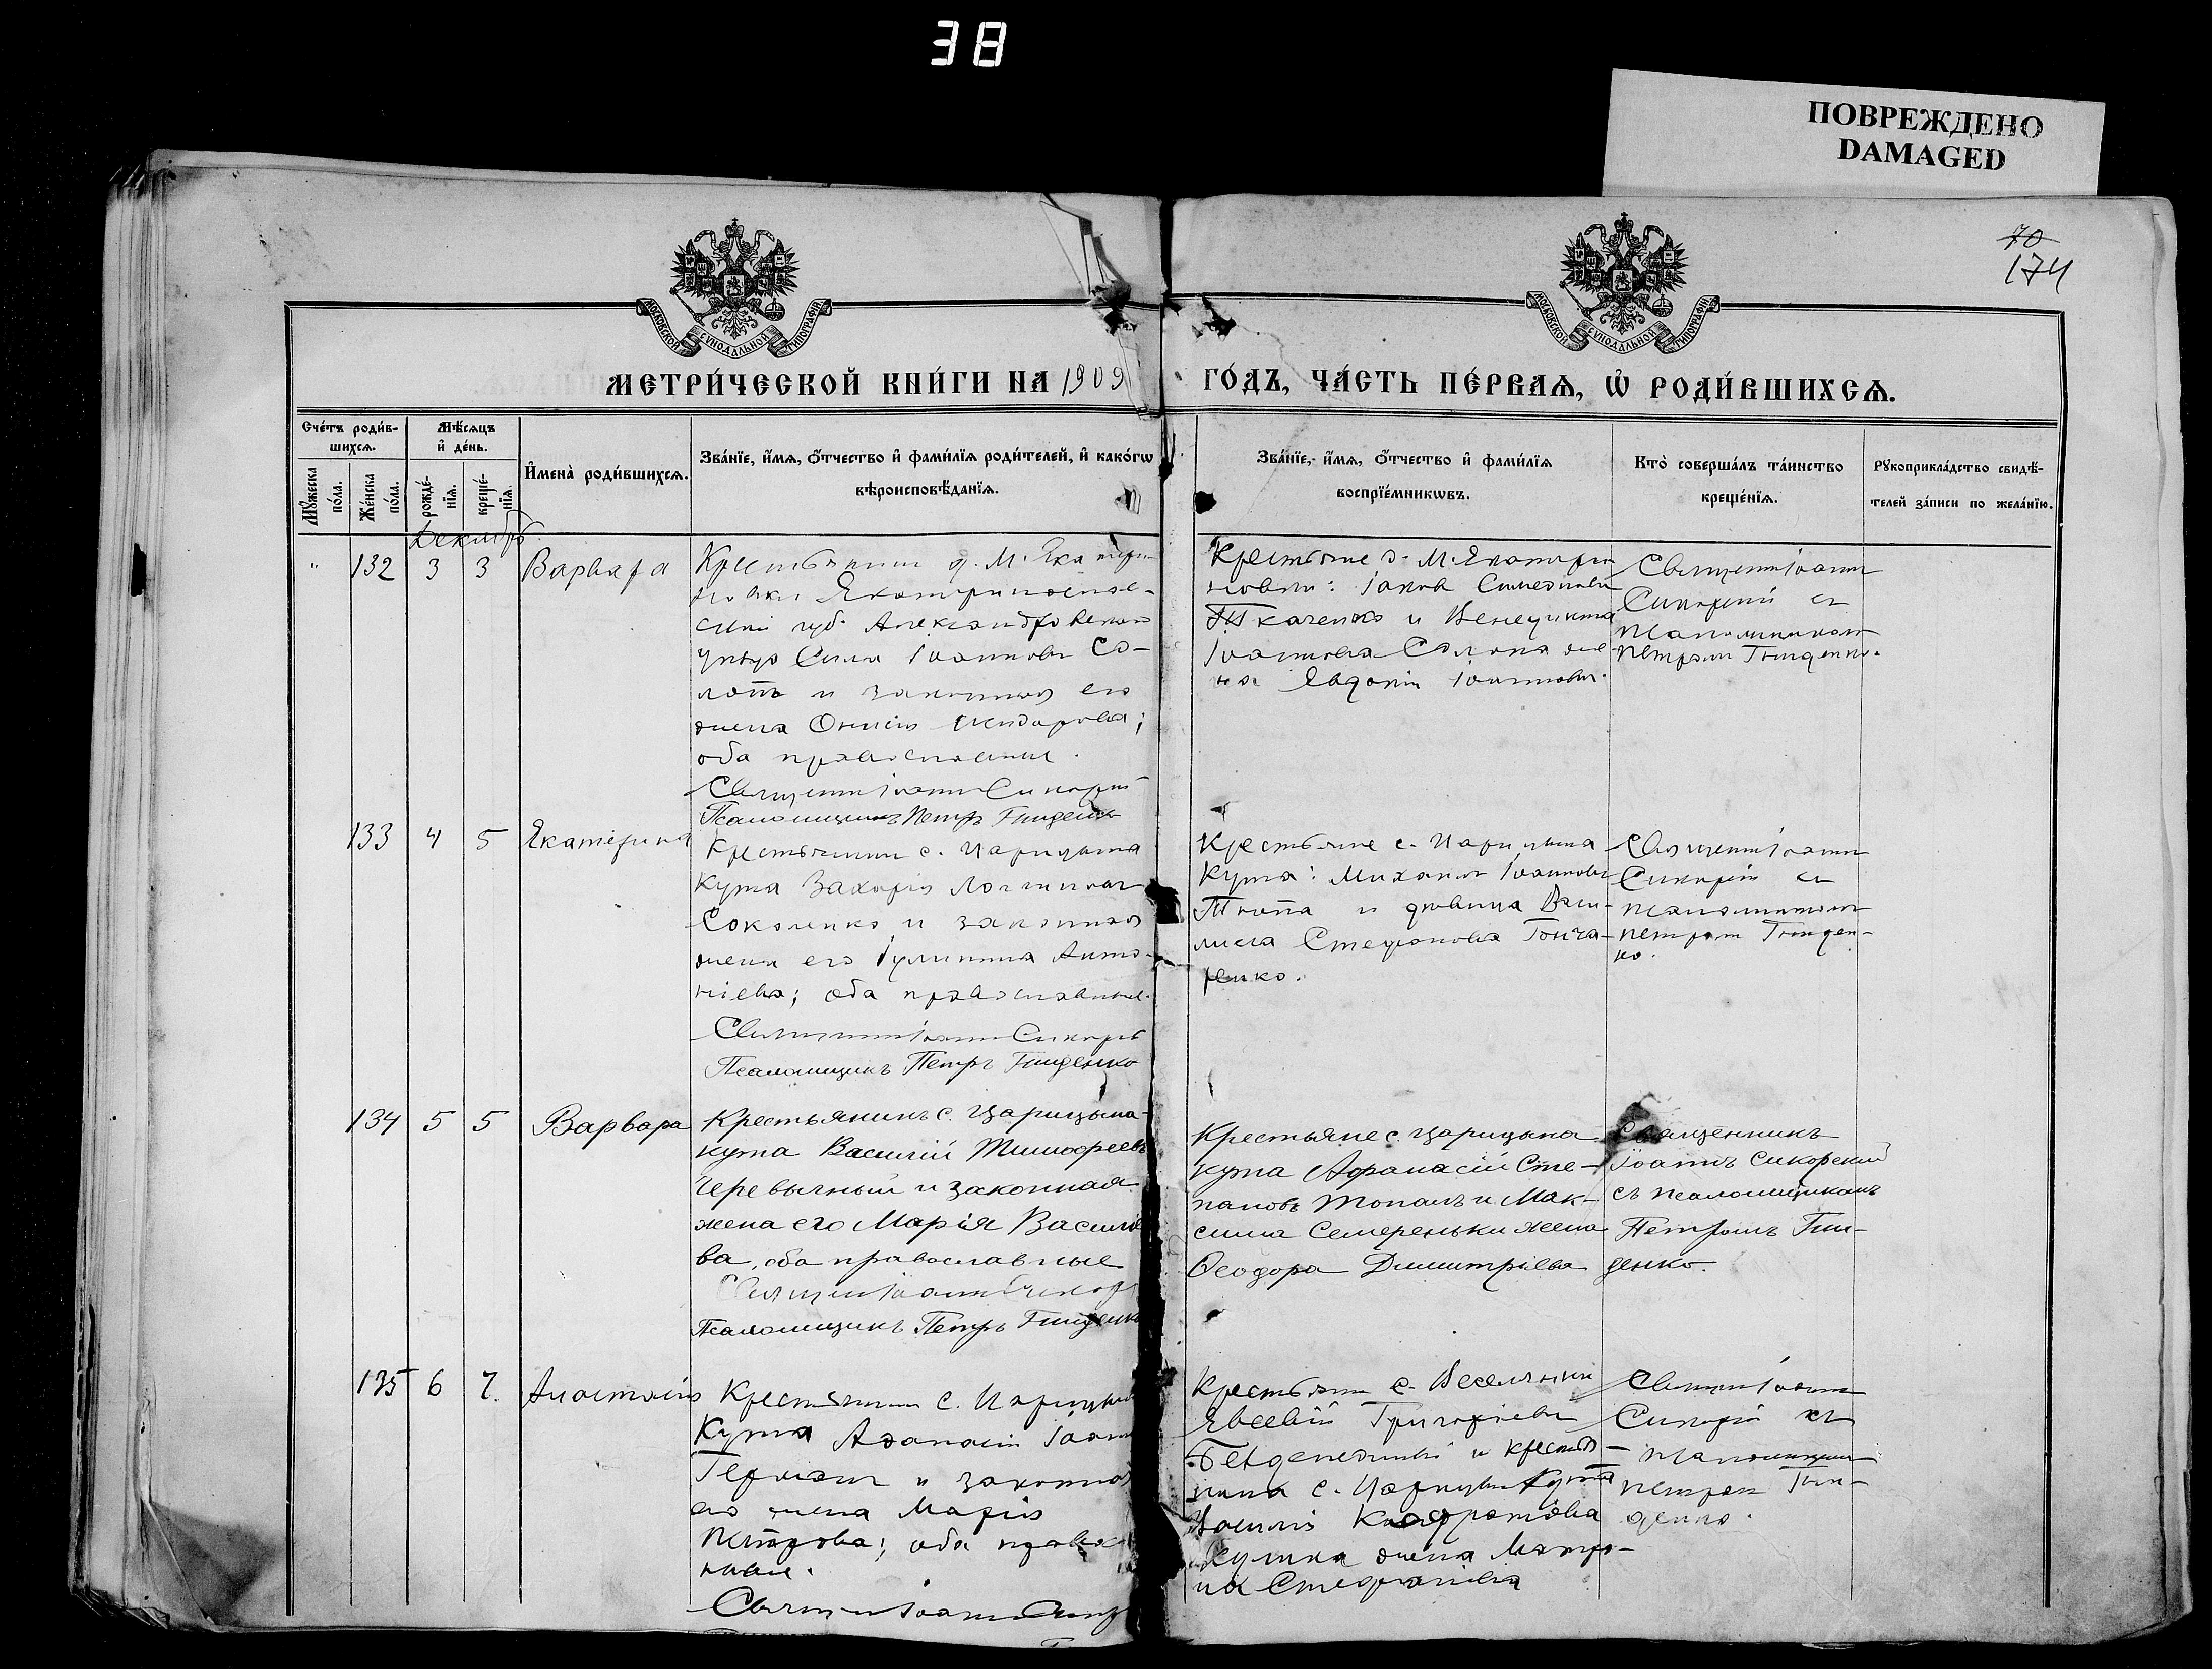 38
ПОВРЕЖДЕНО
DAMAGED
70
174
МОСКОВСКОЙ СѴНОДАЛЬНОЙ ТИПОГРАФІИ
МОСКОВСКОЙ СѴНОДАЛЬНОЙ ТИПОГРАФІИ
МЕТРИ́ЧЕСКОЙ КНИ́ГИ НА 1909 ГО́ДЪ, ЧА́СТЬ ПЕ́РВАѦ, Ѡ҆ РОДИ́ВШИХСѦ.
Сче́тъ роди́в-
шихсѧ.
Мѣ́сѧцъ
и҆ де́нь.
И҆мена̀ роди́вшихсѧ.
Зва́нїе, и҆́мѧ, ѻ҆́тчество и҆ фами́лїѧ роди́телей, и҆ како́гѡ
вѣроисповѣ́данїѧ.
Мꙋ́жеска
по́ла.
Же́нска
по́ла.
рожде́-
нїѧ.
креще́-
нїѧ.
Зва́нїе, и҆́мѧ, ѻ҆́тчество и҆ фами́лїѧ
воспрїе́мникѡвъ.
Кто̀ соверша́лъ та́инство
креще́нїѧ.
Рꙋкоприкла́дство свидѣ́-
телей за́писи по жела́нїю.
Декабрь.
" 132 3 3 Варвара
Крестьянин д. М. Екатери-
новки Екатеринослав-
ской губ. Александровскаго
уѣзда Сила Іоаннов Со-
лопъ и законная его
жена Онисія Исидорова;
оба православные.
Священник Іоанн Сикорский
Псаломщикъ Петръ Гниденко
Крестьяне д. М. Екатери-
новки: Іаков Симеонов
Ткаченко и
Іоаннова Солопа же-
на Евдокія Іоаннова.
Священник Іоанн
Сикорский съ
псаломщиком
Петром Гниденко.
133 4 5 Екатерина
Крестьянин с. Царицына
Кута Захарія Логгинов
Соколенко и законная
жена его Іулитта Анто-
ніева; оба православные.
Священник Іоанн Сикорский
Псаломщикъ Петръ Гниденко
Крестьяне с. Царицына
Кута: Михаил Іоаннов
и дѣвица Васи-
лиса Стефанова Гонча-
ренко.
Священник Іоанн
Сикорский съ
псаломщиком
Петром Гниден-
ко.
134 5 5 Варвара
Крестьянинъ с. Царицына-
кута Василій Тимофеевъ
Черевычный и законная
жена его Марія Василіе
ва, оба православные
Священник Іоанн Сикор
Псаломщикъ Петръ Гниденко
Крестьяне с. Царицына
кута Афанасій Сте-
пановъ Топалъ и Мак-
сима Семереньки жена
Ѳеодора Димитріева
Священникъ
Іоаннъ Сикорский
съ псаломщикомъ
Петромъ Гни-
денко.
135 6 7. Анастасія
Крестьянин с. Царицына
Кута Афанасій Іоанн
Герман и законная
его жена Марія
Петрова; оба правосл
ные.
Священник Іоанн Сикор
Крестьянин с. Веселянки
Евсевій Григоріев
и крестья-
нина с. Царицына Кута
Василія Кондратова
жена Матро-
на Стефанова
Священник Іоанн
Сикорский съ
псаломщиком
Петром Гни-
денко.